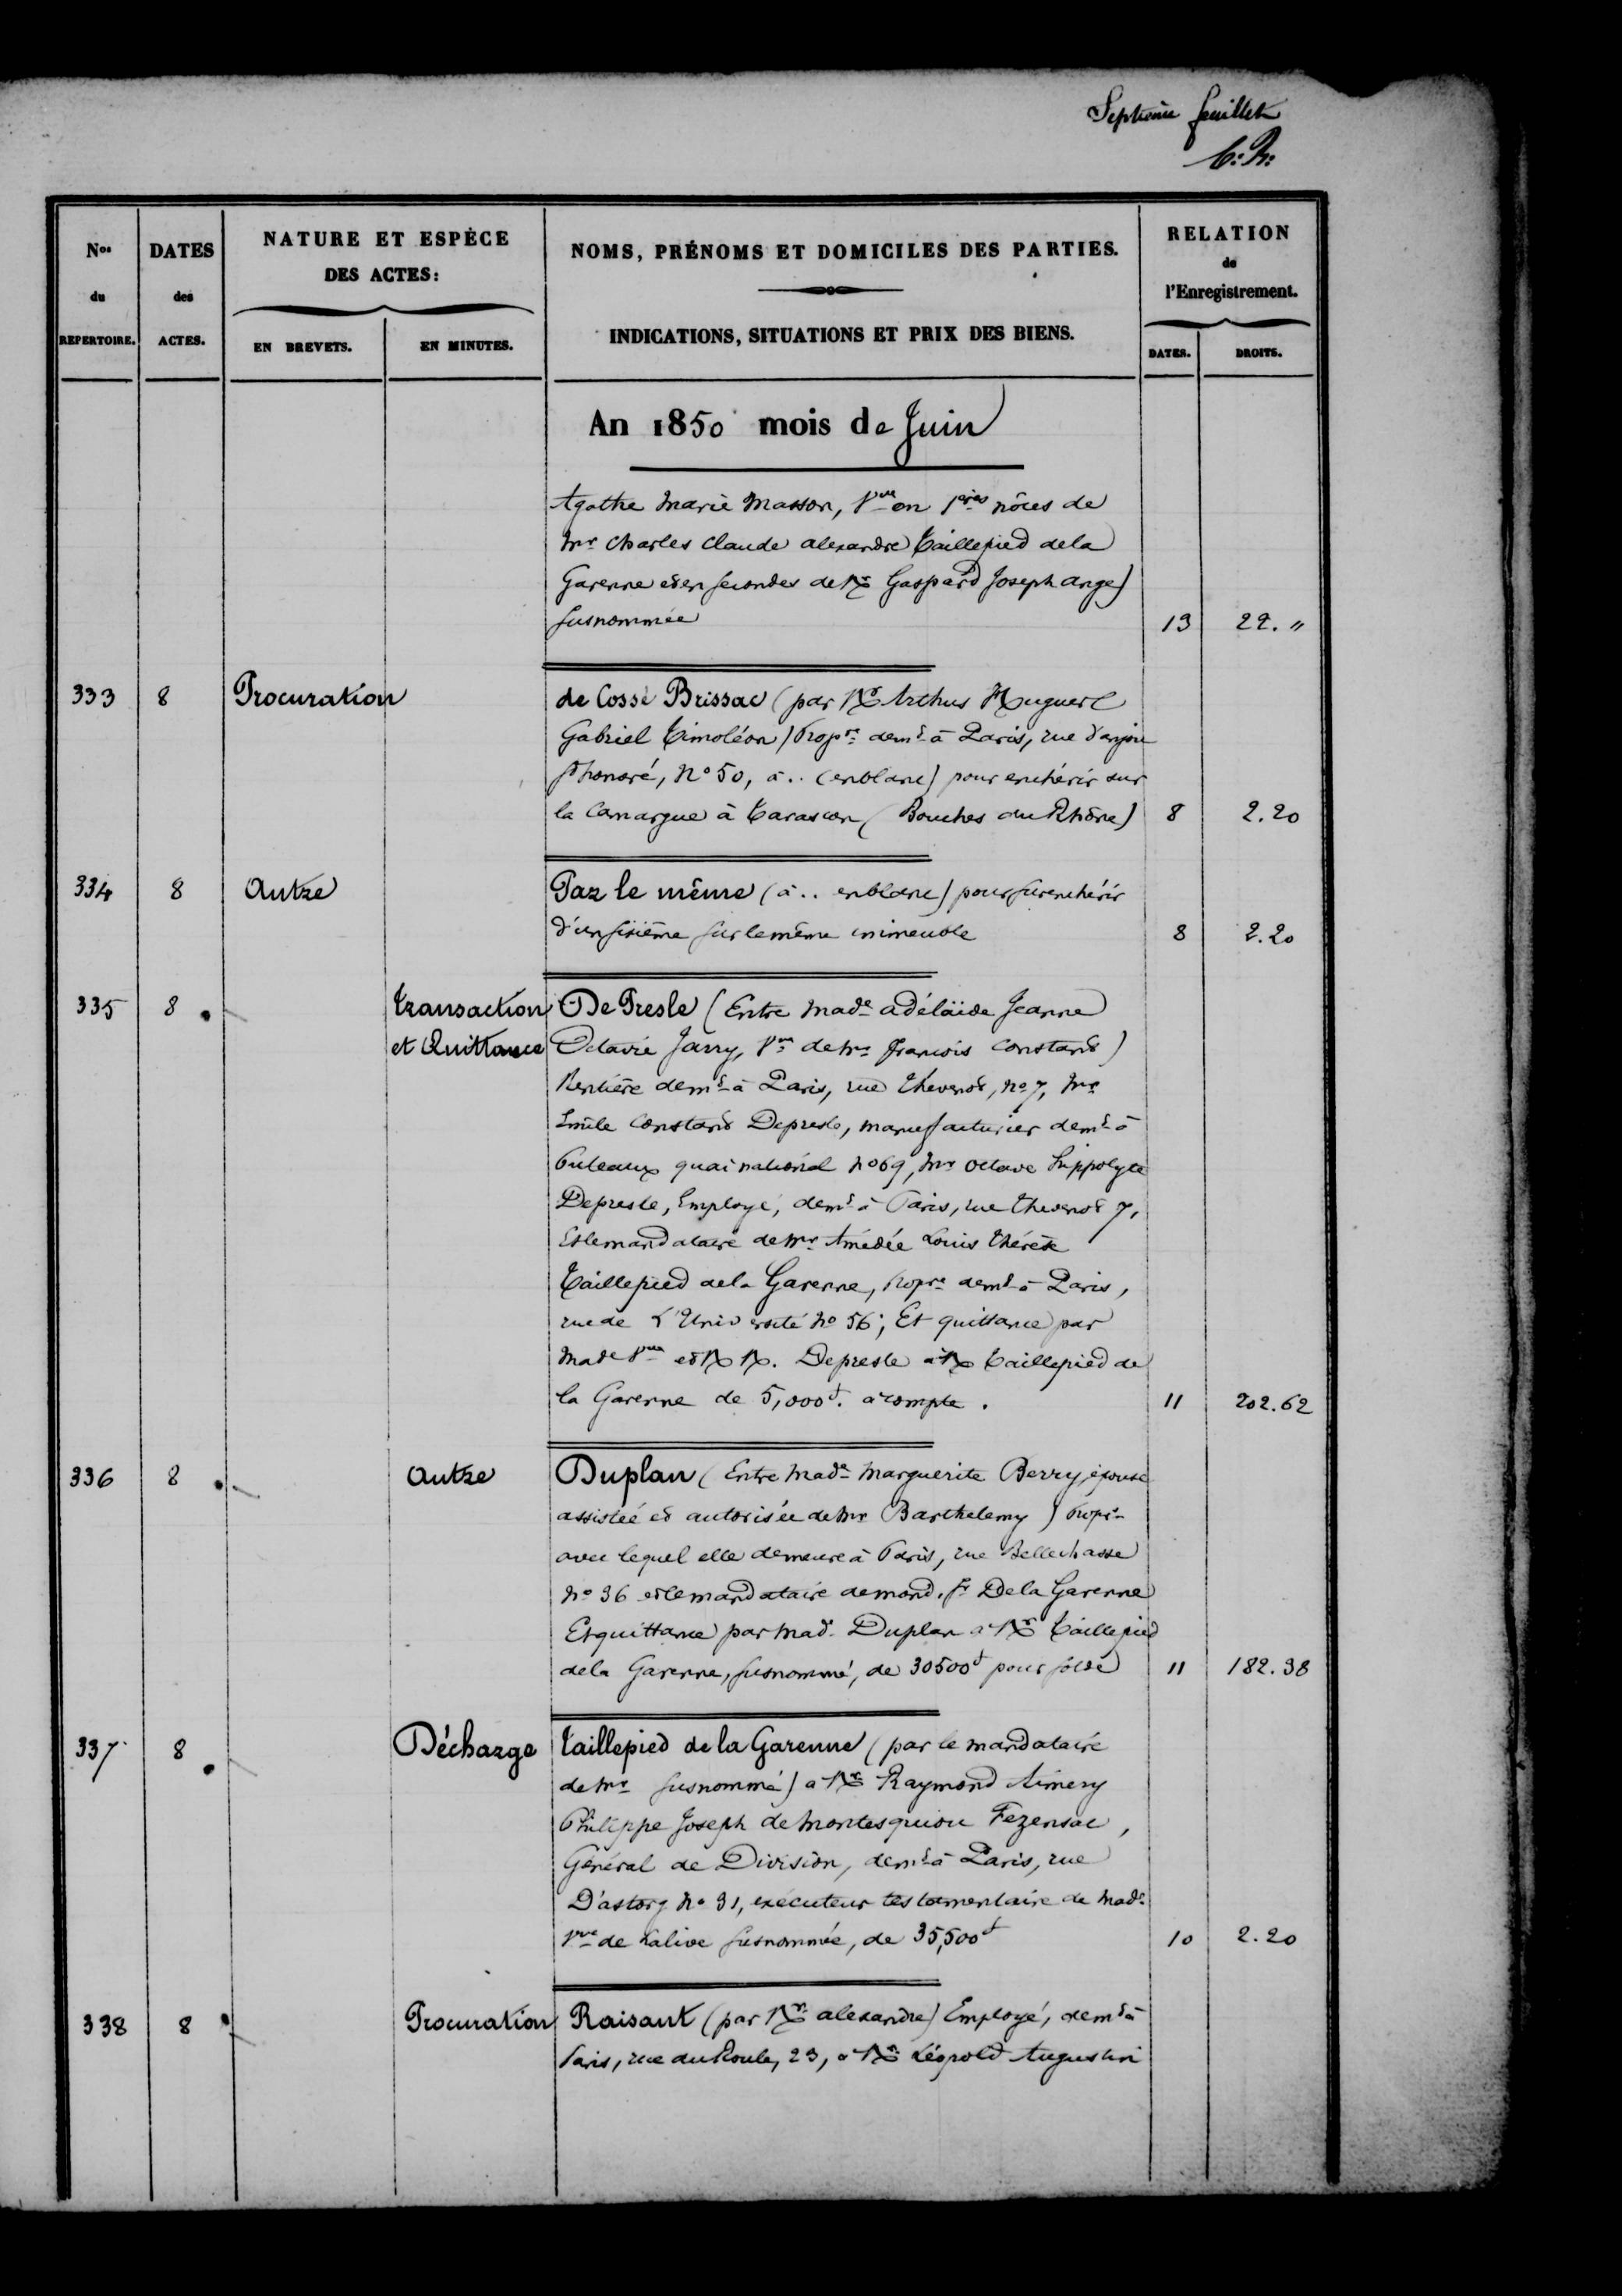 Septième feuillet
Nos du REPERTOIRE.
DATES des ACTES.
NATURE ET ESPÈCE DES ACTES:
EN BREVETS.
EN MINUTES.
NOMS, PRÉNOMS ET DOMICILES DES PARTIES.
INDICATIONS, SITUATIONS ET PRIX DES BIENS.
RELATION de l'Enregistrement.
DATES.
DROITS.
An 1850 mois de Juin
Agathe Marie Masson, Vve en 1ères nôces de
Mr Charles Claude Alexandre Taillepied de la
Garenne et en secondes de Mr Gaspard Joseph ange)
susnommée 13 22. "
333 8 Procuration de Cossé Brissac (par Mr Arthus Hugues
Gabriel Timoléon) Propre demt à Paris, rue d'anjou
St honoré, No 50, à .. (en blanc) pour enchérir sur
la Camargue à Tarascon (Bouches du Rhône) 8 2.20
334 8 Autre Par le même (à .. en blanc) pour surenchérir
d'un sixième sur le même immeuble 8 2.20
335 8 Transaction De Presle (Entre Made adélaïde Jeanne
et Quittance Octavie Jarry, Vve de Mr françois Constant)
Rentière demt à Paris, rue Thevenot, no 7, Mr
Emile Constant Depresle, manufacturier demt à
Puteaux quai national no 69, Mr Octave hippolyte
Depresle, Employé, demt à Paris, rue Thevenot 7,
Et le mandataire de Mr Amédée Louis Thérèse
Taillepied de la Garenne, propre demt à Paris,
rue de L'Université No 56; Et quittance par
Made Vve et MM. Depresle à M Taillepied de
la Garenne de 5,000f. à compte. 11 202.62
336 8 Autre Duplan (Entre Made Marguerite Berry, épouse
assistée et autorisée de Mr Barthelemy) Propre
avec lequel elle demeure à Paris, rue Bellechasse
No 36 et le mandataire de mond. Sr De la Garenne
Et quittance par Made Duplan à Mr Taillepied
de la Garenne, susnommé, de 30500f pour solde 11 182.38
337 8 Décharge Taillepied de la Garenne (par le mandataire
de Mr susnommé) à Mr Raymond Aimery
Philippe Joseph de Montesquiou Fezensac,
Général de Division, demt à Paris, rue
D'astorg No 31, exécuteur testamentaire de Made
Vve de Lalive susnommée, de 35,500f 10 2.20
338 8 Procuration Raisant (par Mr alexandre) Employé, demt à
Paris, rue du Roule, 23, à Mr Léopold Augustin